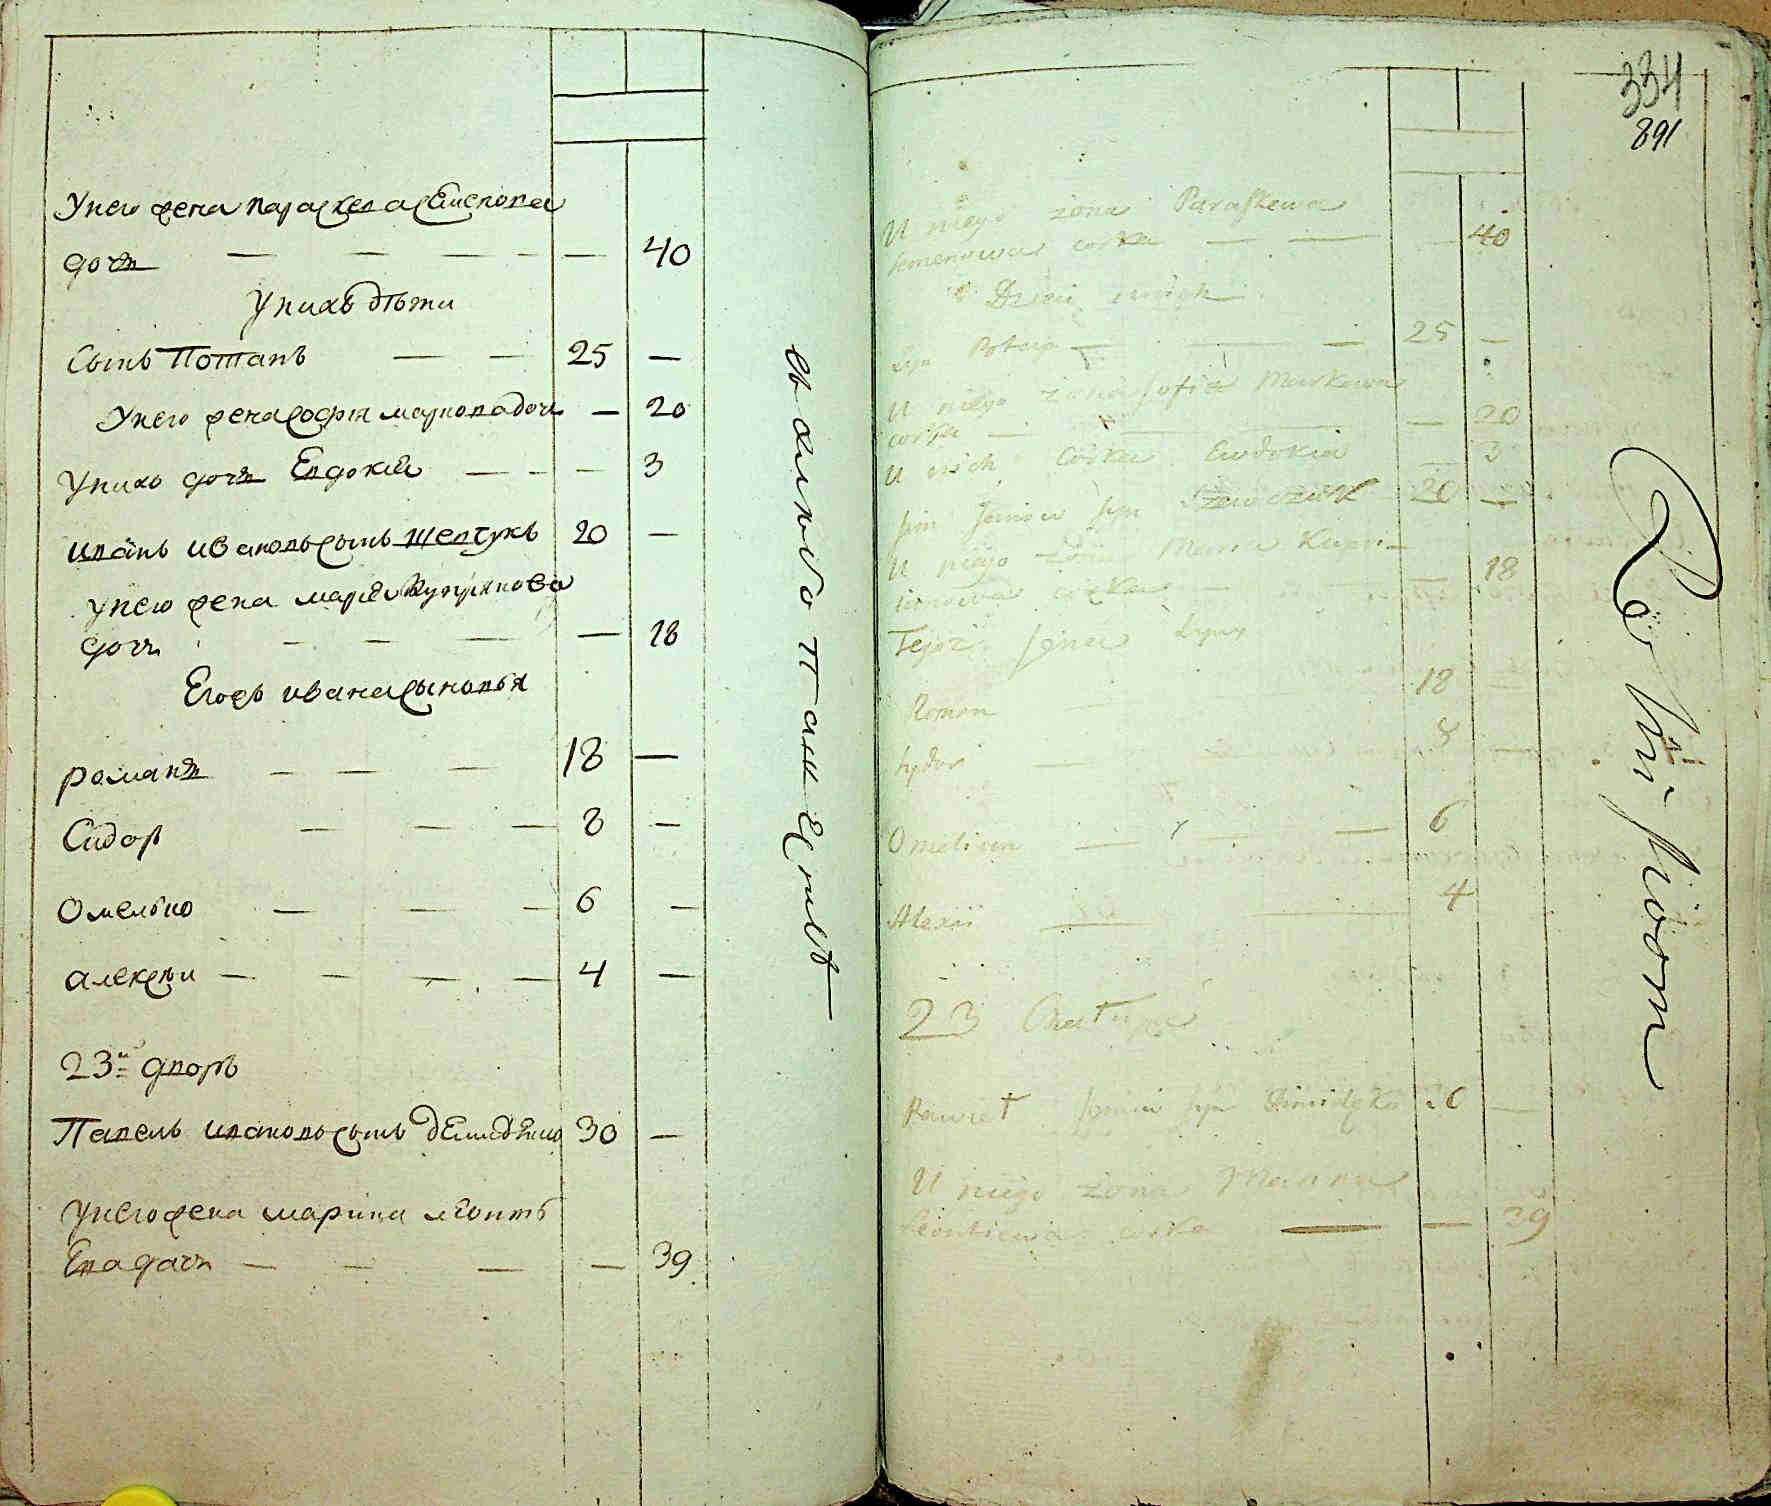 У него жена Параскева Семенова
дочь — — — — — 40
У них дѣти
Сынъ Потапъ — — 25 —
У него жена Софья Маркова дочь — 20
У них дочь Евдокия — — — 3
Иванъ Ивановъ сынъ Шевчукъ 20 —
У него жена Марья Куприянова
дочь — — — — 18
Егожъ Ивана сыновья
Романъ — — — 18 —
Сидор — — — 8 —
Омелько — — — 6 —
Алексѣи — — — — 4 —
23й дворъ
Павелъ Ивановъ сынъ Демиденко 30 —
У него жена Марина Леонть
ева дочь — — — — 39
334
891
U niego żona Paraskewa
Semenowa corka — — — 40
Dzieci u nich
syn Potap — — — 25 —
U niego żona Sofia Markowa
corka — — — 20
U nich Corka Ewdokia — 3
syn Szewczuk 20 —
U niego żona Maria Kupri-
ianowa corka — — 18
Tegoż Jana Syny
Roman — 18
Sydor — 8 —
Omelian — — — 6
Alexii — — 4
23 Chałupa
Paweł syn Dimidenko —
U niego żona Marina
Leontiewa corka — — 39